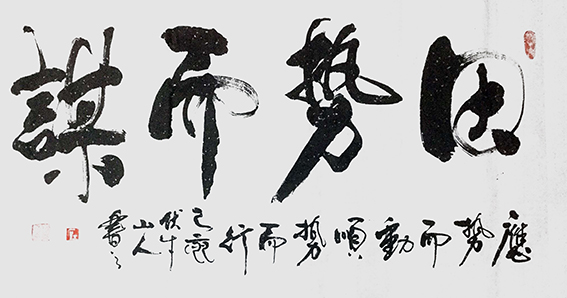 因勢而謀
應勢而動順勢而行
己亥
伏牛
山人
書之